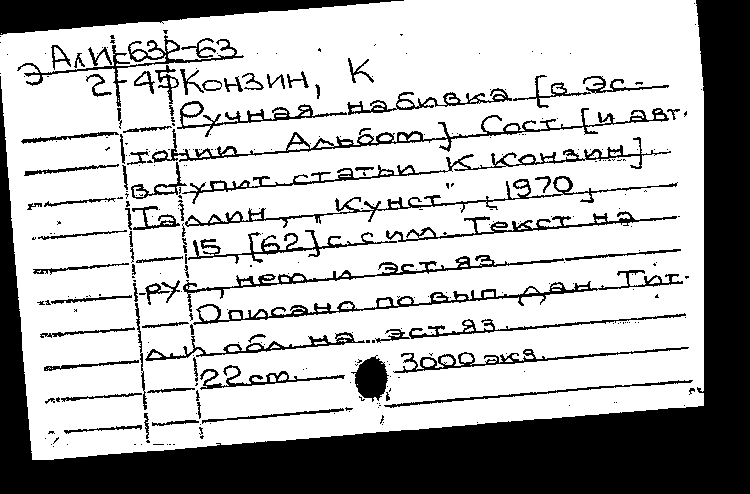 Э АлИ-632-63
2-45 Конзин, К
Ручная набивка [в Эс-
тонии. Альбом]. Сост. [и авт.
вступит. статьи К. Конзин].
Таллин, „Кунст", [1970]
15, [62] с. с ил. Текст на
рус., нем. и эст. яз.
Описано по вып. дан. Тит.
л. и обл. на эст. яз.
22 см. 3000 экз.